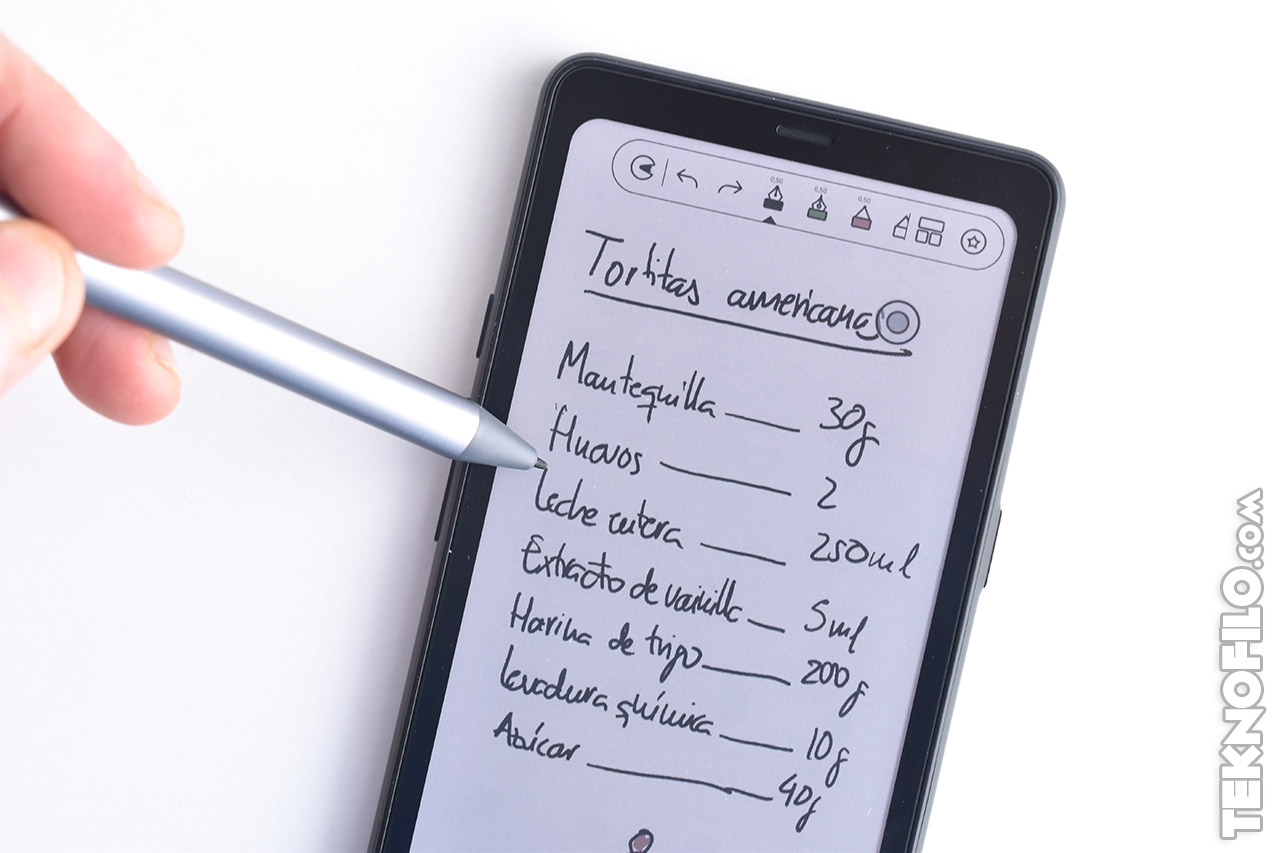 0,50 0,50 0,50
Tortitas americanas
Mantequilla 30g
Huevos 2
Leche entera 250ml
Extracto de vainilla 5ml
Harina de trigo 200g
Levadura química 10g
Azúcar 40g
TEKNOFILO.COM